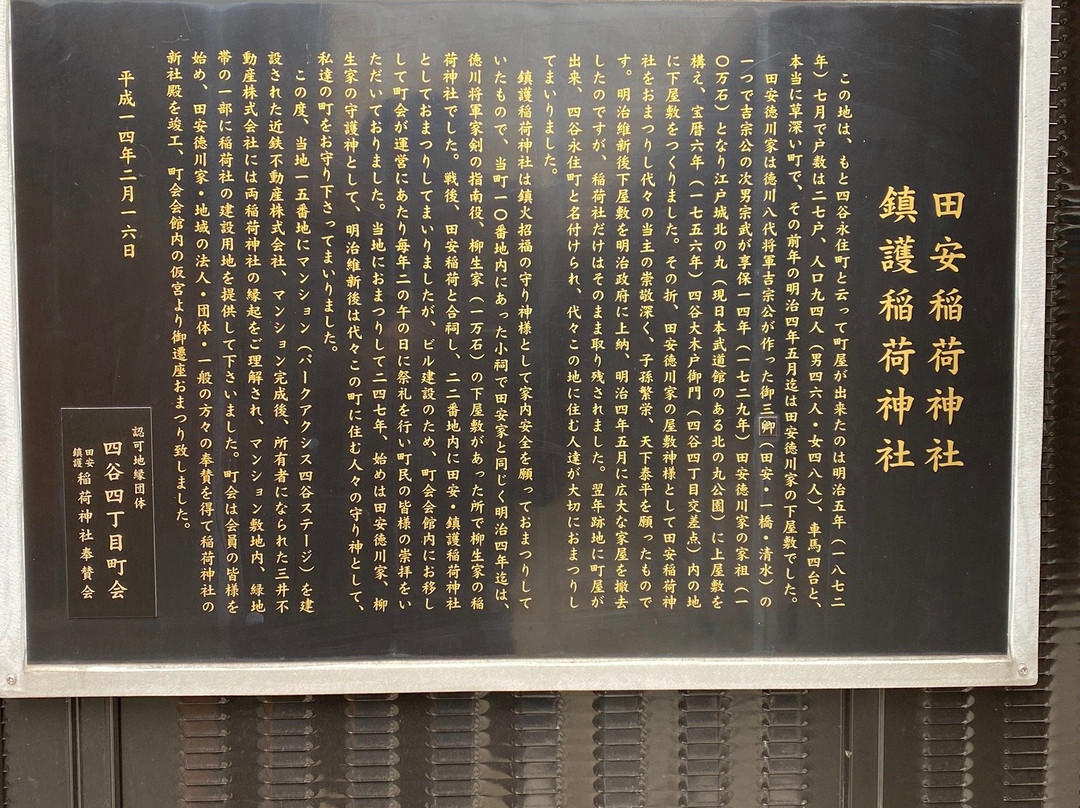 田安稲荷神社
鎮護稲荷神社
この地は、もと四谷永住町と云って町屋が出来たのは明治五年（一八七二
年）七月で戸数は二七戸、人口九四人（男四六人・女四八人）、車馬四台と、
本当に草深い町で、その前年の明治四年五月迄は田安徳川家の下屋敷でした。
田安徳川家は徳川八代将軍吉宗公が作った御三卿（田安・一橋・清水）の
一つで吉宗公の次男宗武が享保一四年（一七二九年）田安徳川家の家祖（一
〇万石）となり江戸城北の丸（現日本武道館のある北の丸公園）に上屋敷を
構え、宝暦六年（一七五六年）四谷大木戸御門（四谷四丁目交差点）内の地
に下屋敷をつくりました。その折、田安徳川家の屋敷神様として田安稲荷神
社をおまつりし代々の当主の崇敬深く、子孫繁栄、天下泰平を願ったもので
す。明治維新後下屋敷を明治政府に上納、明治四年五月に広大な家屋を撤去
したのですが、稲荷社だけはそのまま取り残されました。翌年跡地に町屋が
出来、四谷永住町と名付けられ、代々この地に住む人達が大切におまつりし
てまいりました。
鎮護稲荷神社は鎮火招福の守り神様として家内安全を願っておまつりして
いたもので、当町一〇番地内にあった小祠で田安家と同じく明治四年迄は、
徳川将軍家剣の指南役、柳生家（一万石）の下屋敷があった所で柳生家の稲
荷神社でした。戦後、田安稲荷と合祠し、二二番地内に田安・鎮護稲荷神社
としておまつりしてまいりましたが、ビル建設のため、町会会館内にお移し
して町会が運営にあたり毎年二の午の日に祭礼を行い町民の皆様の崇拝をい
ただいておりました。当地におまつりして二四七年、始めは田安徳川家、柳
生家の守護神として、明治維新後は代々この町に住む人々の守り神として、
私達の町をお守り下さってまいりました。
この度、当地一五番地にマンション（パークアクシス四谷ステージ）を建
設された近鉄不動産株式会社、マンション完成後、所有者になられた三井不
動産株式会社には両稲荷神社の縁起をご理解され、マンション敷地内、緑地
帯の一部に稲荷社の建設用地を提供して下さいました。町会は会員の皆様を
始め、田安徳川家・地域の法人・団体・一般の方々の奉賛を得て稲荷神社の
新社殿を竣工、町会会館内の仮宮より御遷座おまつり致しました。
平成一四年二月一六日
認可地縁団体
四谷四丁目町会
田安
鎮護 稲荷神社奉賛会